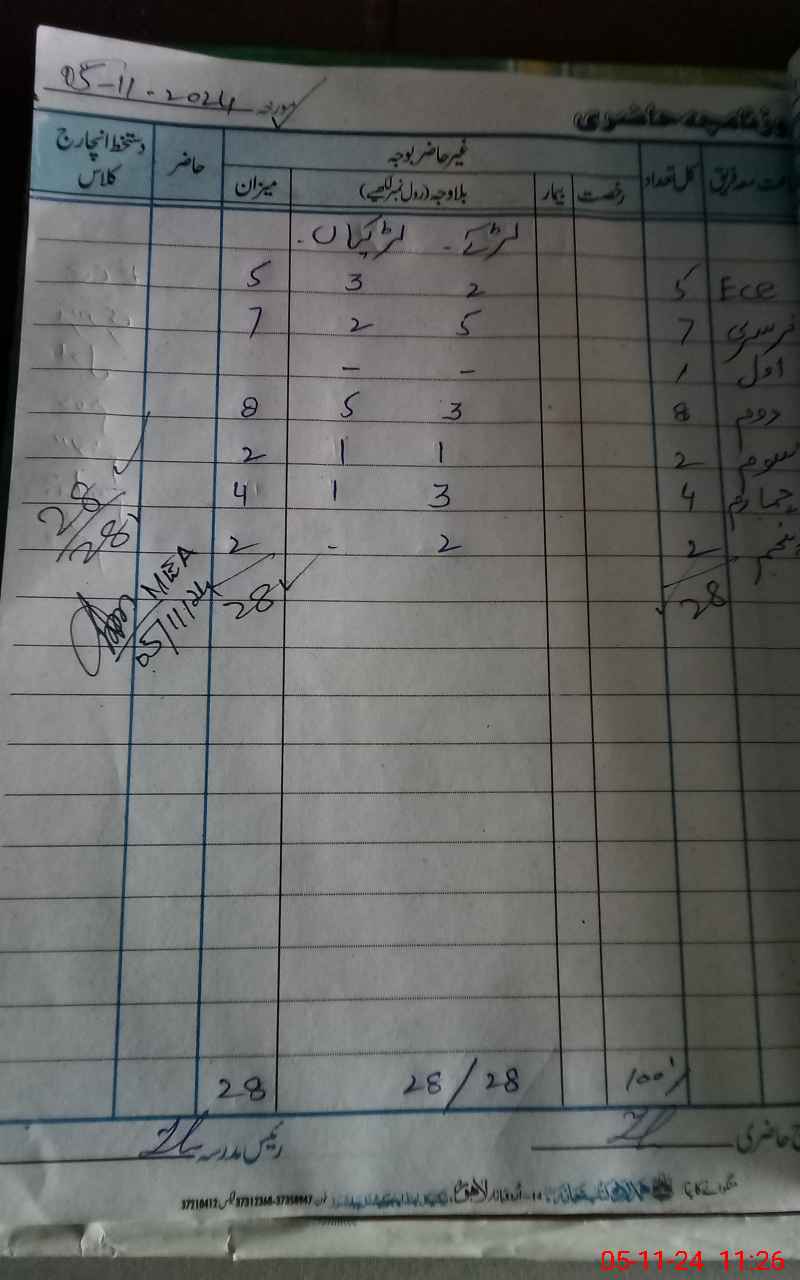 05-11-2024 مورخہ
روزنامچہ حاضری
جماعت معہ فریق کل تعداد غیر حاضر بوجہ حاضر دستخط انچارج کلاس
رخصت بیمار بلاوجہ (رول نمبر لکھیے) میزان
لڑکے - لڑکیاں -
Ece 5 2 3 5
نرسری 7 5 2 7
اول 1 - -
دوم 8 3 5 8
سوم 2 1 1 2
چہارم 4 3 1 4
پنجم 2 2 - 2
28 28
28/28
MEA
05/11/24
100% 28/28 28
حاضری رئیس مدرسہ
لاہور 37310412 37312368-37358947
05-11-24 11:26